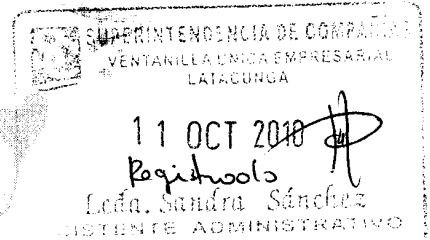 SUPERINTENDENCIA DE COMPAÑIAS
VENTANILLA UNICA EMPRESARIAL
LATACUNGA
11 OCT 2010
Registrado
Lcda. Sandra Sánchez
ASISTENTE ADMINISTRATIVO